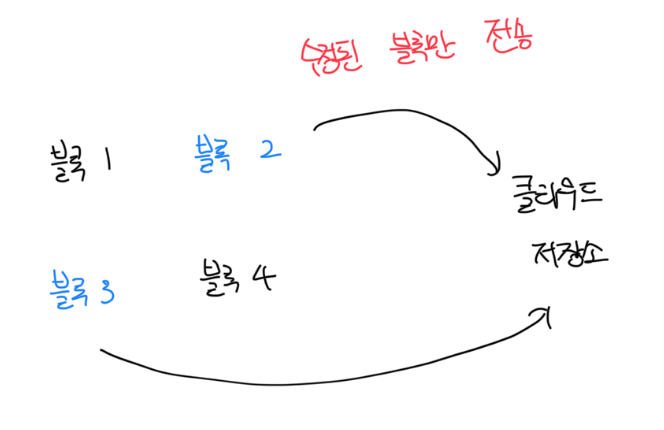 수정된 블록만 전송
블록 1 블록 2
클라우드
저장소
블록 3 블록 4